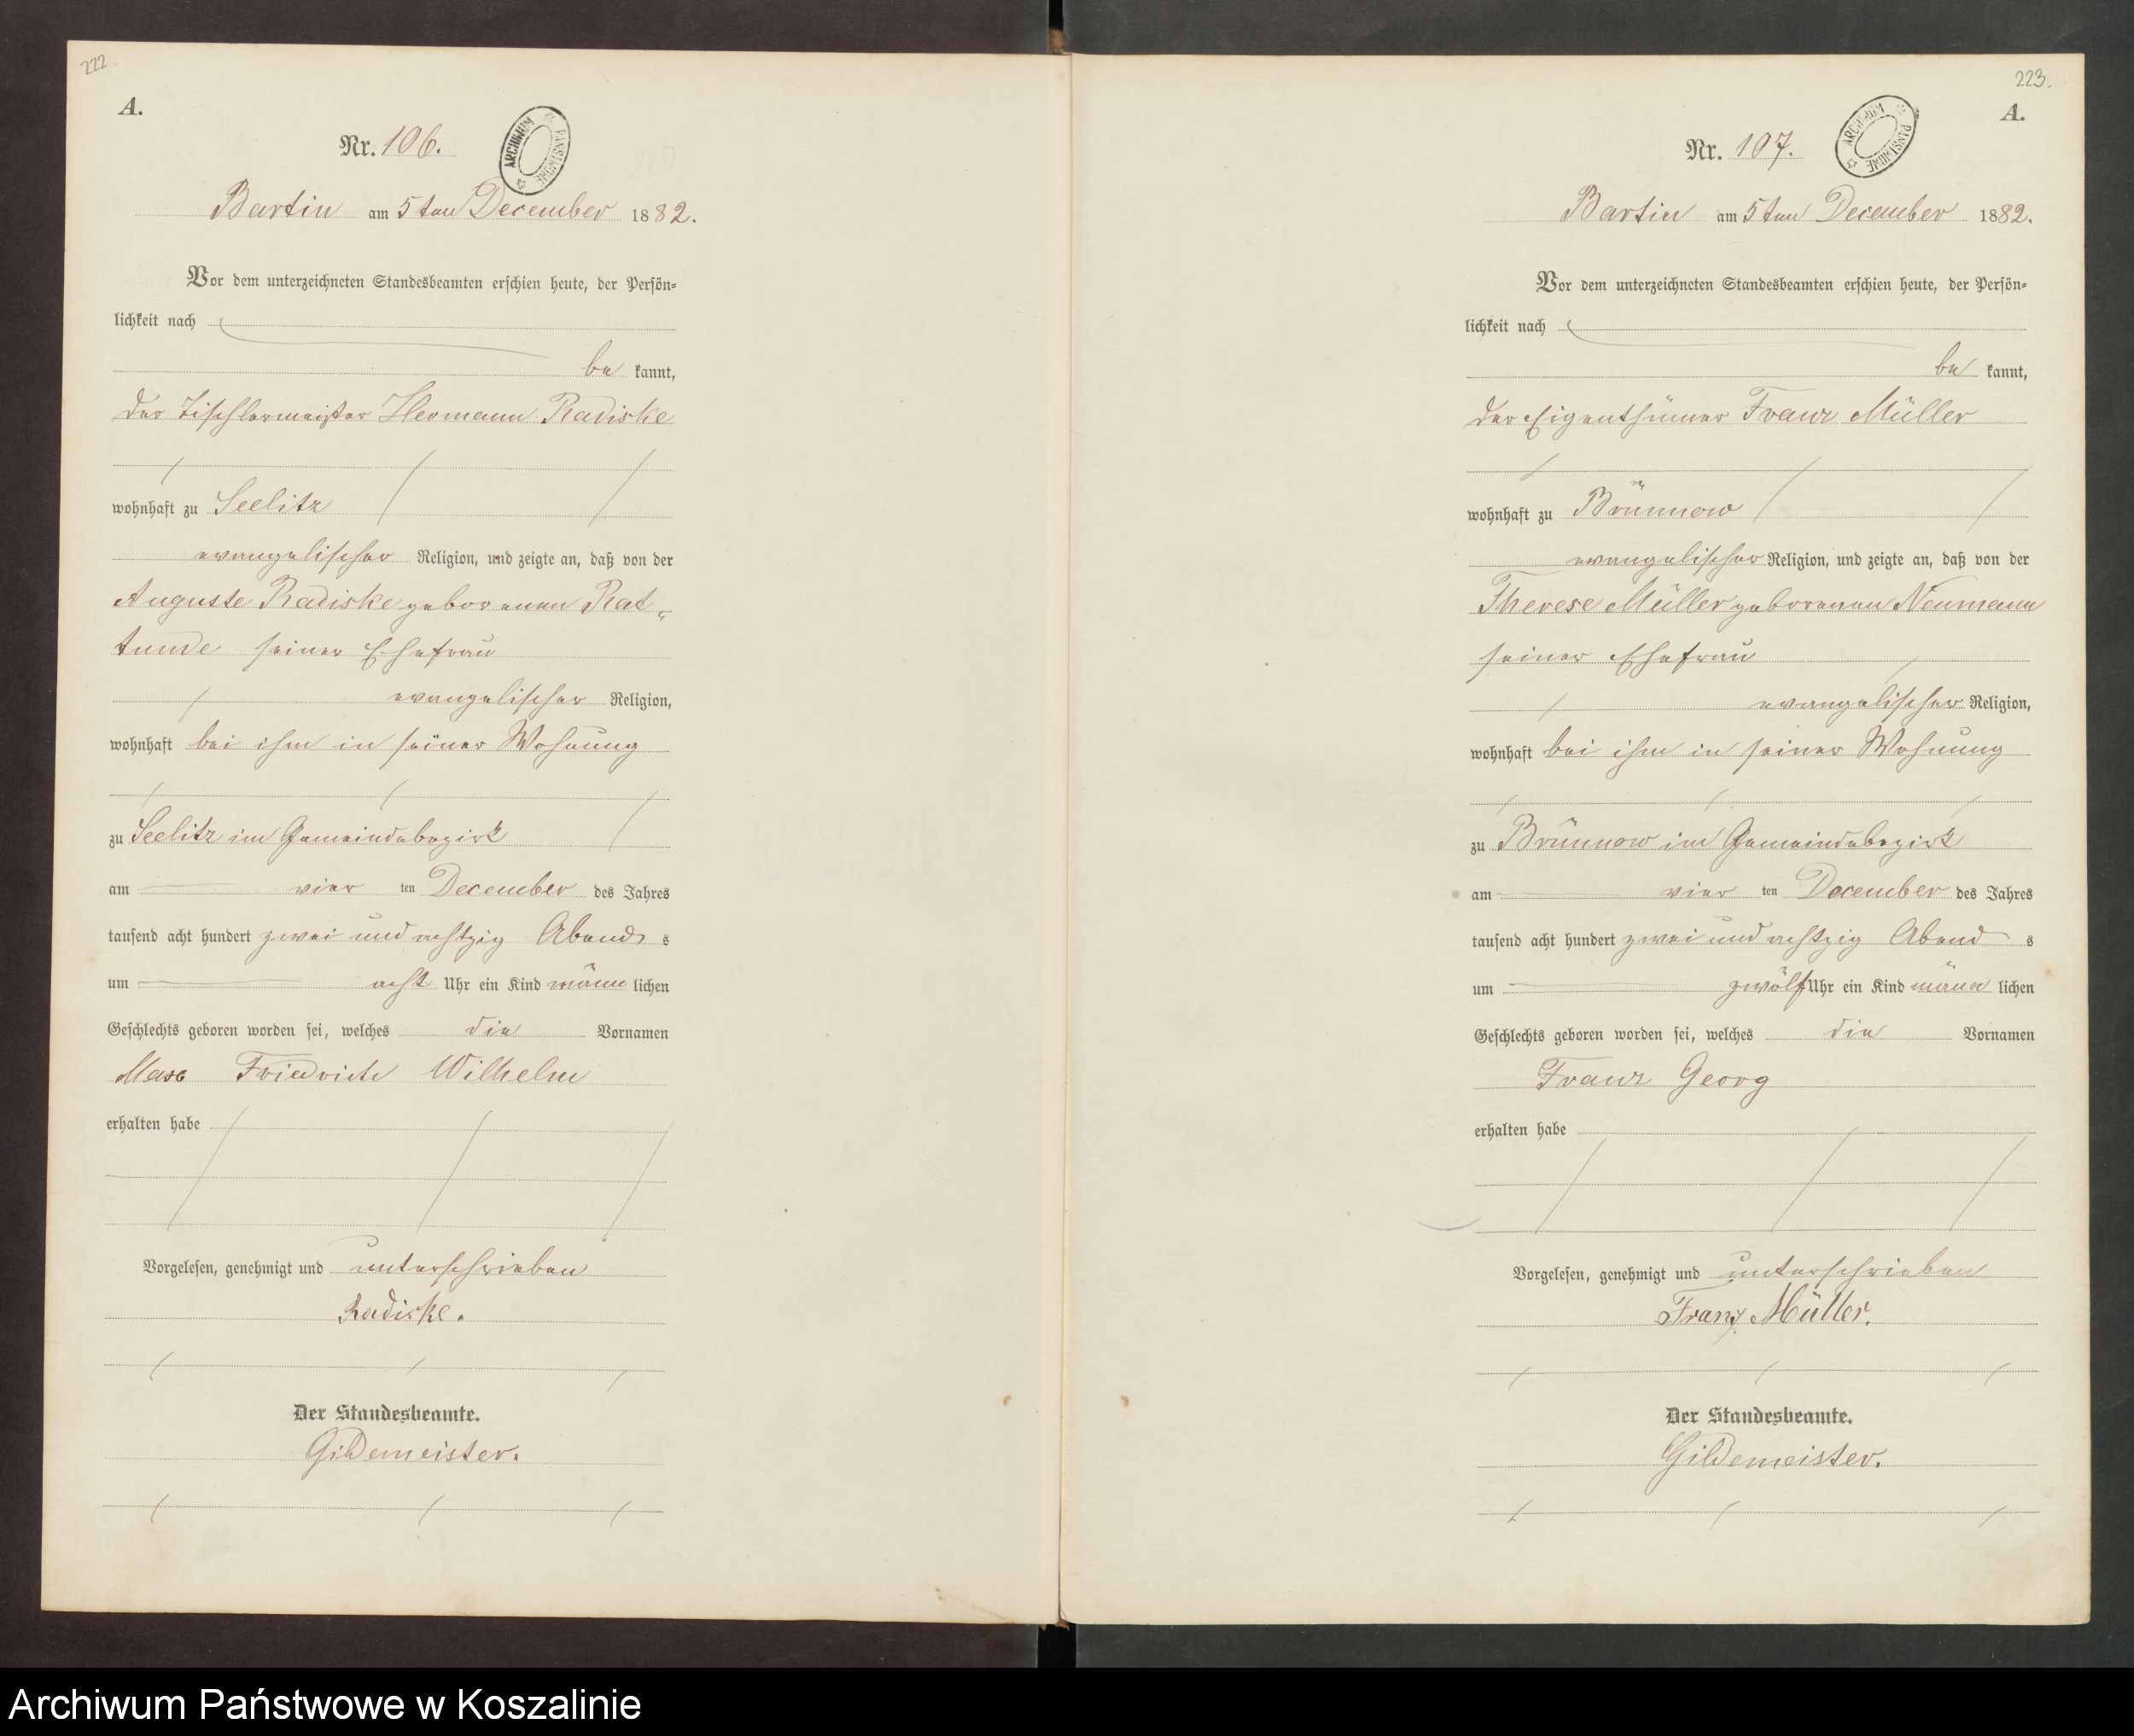 222.
A.
Nr. 106.
ARCHIWUM PAŃSTWOWE
Bartin am 5ten December 1882.
Vor dem unterzeichneten Standesbeamten erschien heute, der Persön-
lichkeit nach
be kannt,
der Tischlermeister Hermann Radiske
wohnhaft zu Seelitz
evangelischer Religion, und zeigte an, daß von der
Auguste Radiske geborenen Rat-
tunde seiner Ehefrau
evangelischer Religion,
wohnhaft bei ihm in seiner Wohnung
zu Seelitz im Gemeindebezirk
am vier ten December des Jahres
tausend acht hundert zwei und achtzig Abend s
um acht Uhr ein Kind männ lichen
Geschlechts geboren worden sei, welches die Vornamen
Max Friedrich Wilhelm
erhalten habe
Vorgelesen, genehmigt und unterschrieben
Radiske.
Der Standesbeamte.
Gildemeister.
223.
A.
Nr. 107.
ARCHIWUM PAŃSTWOWE
Bartin am 5ten December 1882.
Vor dem unterzeichneten Standesbeamten erschien heute, der Persön-
lichkeit nach
be kannt,
der Eigenthümer Franz Müller
wohnhaft zu Brünnow
evangelischer Religion, und zeigte an, daß von der
Therese Müller geborenen Neumann
seiner Ehefrau
evangelischer Religion,
wohnhaft bei ihm in seiner Wohnung
zu Brünnow im Gemeindebezirk
am vier ten December des Jahres
tausend acht hundert zwei und achtzig Abend s
um zwölf Uhr ein Kind männ lichen
Geschlechts geboren worden sei, welches die Vornamen
Franz Georg
erhalten habe
Vorgelesen, genehmigt und unterschrieben
Franz Müller.
Der Standesbeamte.
Gildemeister.
Archiwum Państwowe w Koszalinie